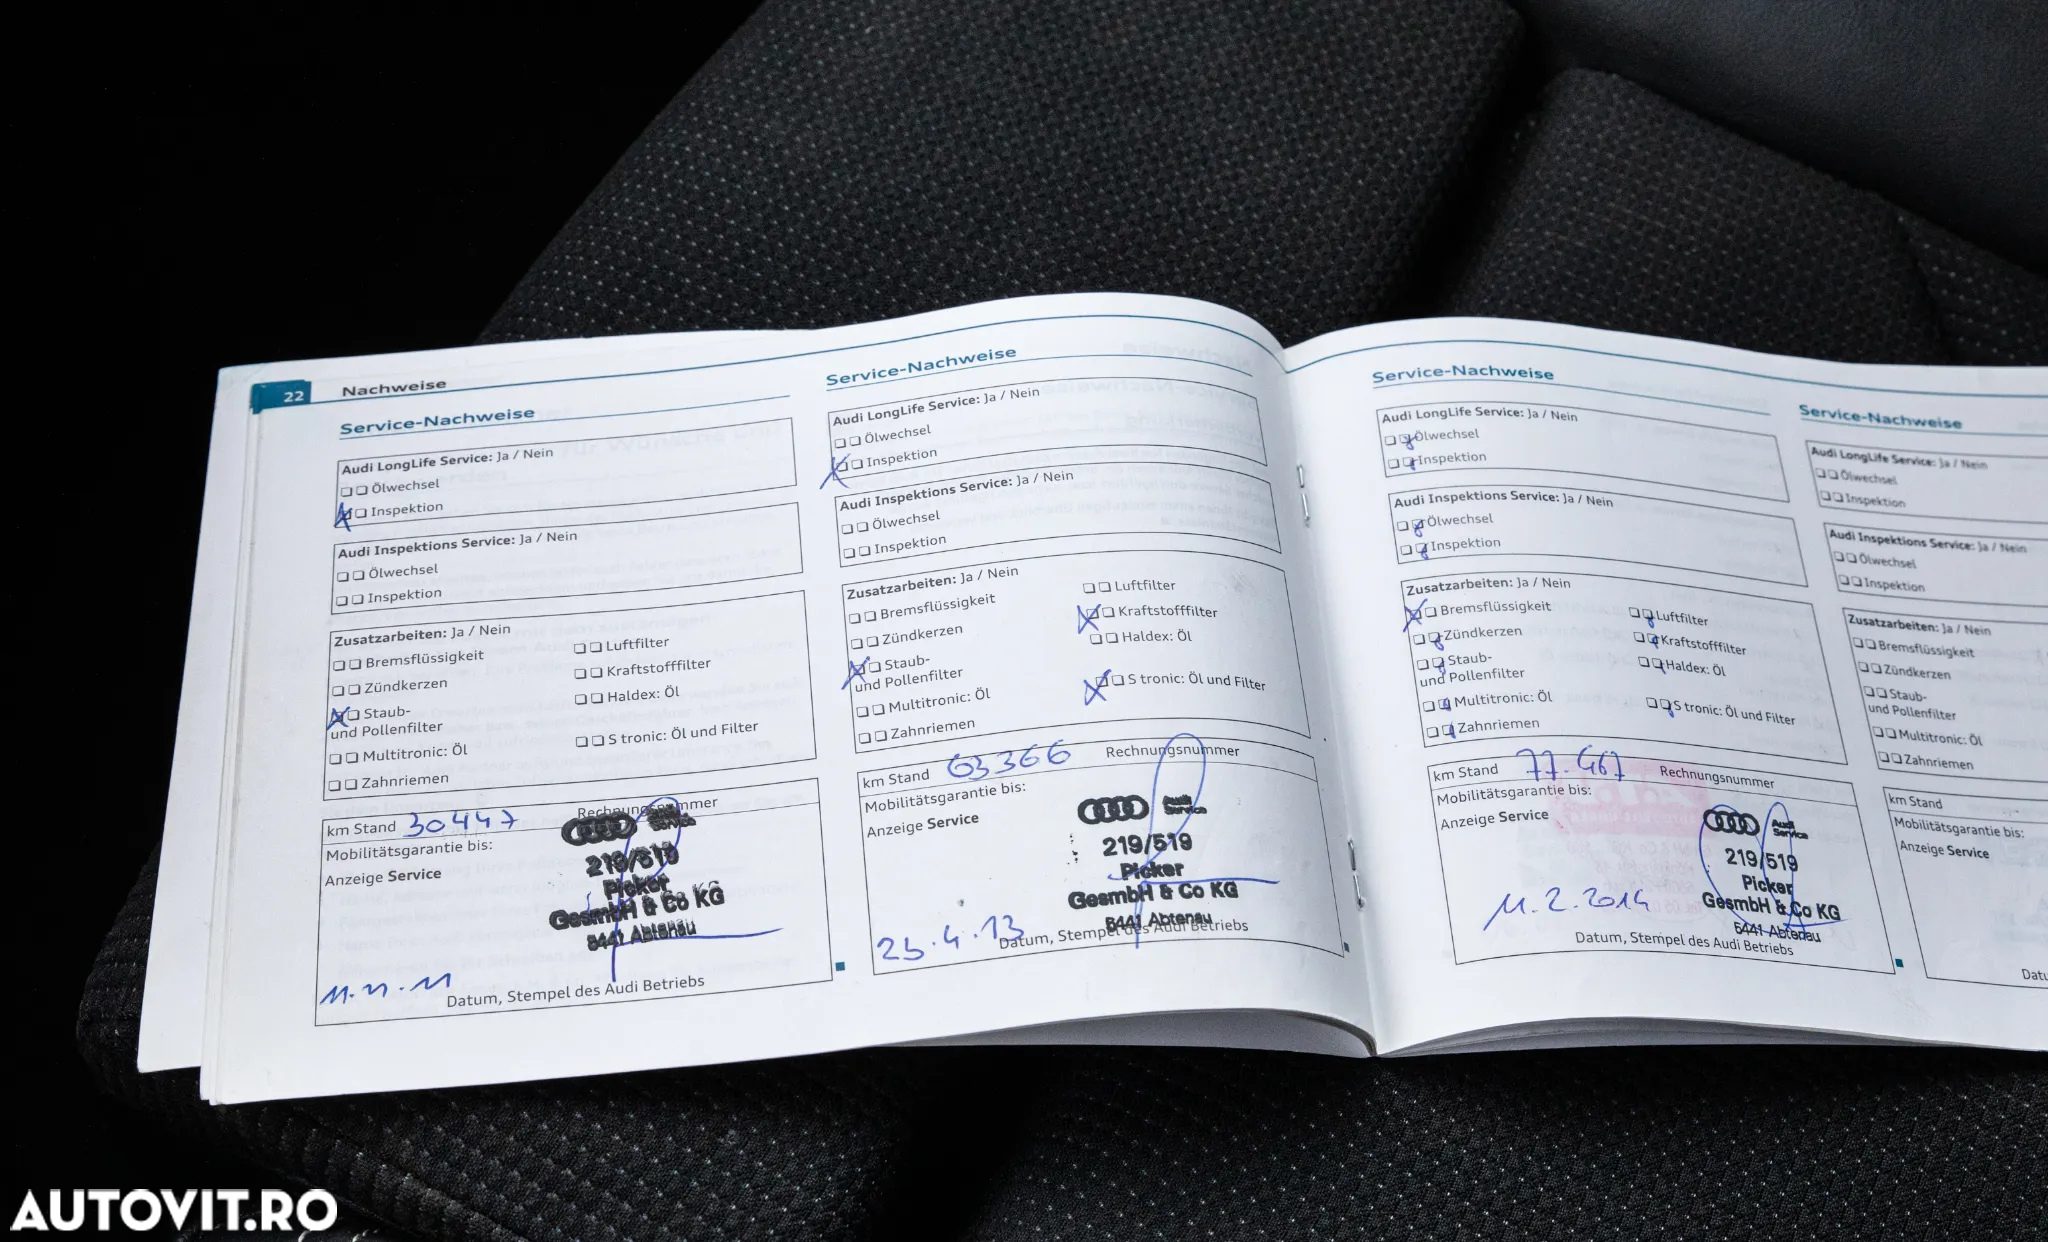 22 Nachweise
Service-Nachweise
Audi LongLife Service: Ja / Nein
Ölwechsel
Inspektion
Audi Inspektions Service: Ja / Nein
Ölwechsel
Inspektion
Zusatzarbeiten: Ja / Nein
Bremsflüssigkeit
Zündkerzen
Staub-
und Pollenfilter
Multitronic: Öl
Zahnriemen
Luftfilter
Kraftstofffilter
Haldex: Öl
S tronic: Öl und Filter
km Stand 30447 Rechnungsnummer
Mobilitätsgarantie bis:
Anzeige Service
219/519
Picker
GesmbH & Co KG
5441 Abtenau
11.11.11
Datum, Stempel des Audi Betriebs
Service-Nachweise
Audi LongLife Service: Ja / Nein
Ölwechsel
Inspektion
Audi Inspektions Service: Ja / Nein
Ölwechsel
Inspektion
Zusatzarbeiten: Ja / Nein
Bremsflüssigkeit
Zündkerzen
Staub-
und Pollenfilter
Multitronic: Öl
Zahnriemen
Luftfilter
Kraftstofffilter
Haldex: Öl
S tronic: Öl und Filter
km Stand 63366 Rechnungsnummer
Mobilitätsgarantie bis:
Anzeige Service
Audi
Service
219/519
Picker
GesmbH & Co KG
5441 Abtenau
25.4.13
Datum, Stempel des Audi Betriebs
Service-Nachweise
Audi LongLife Service: Ja / Nein
Ölwechsel
Inspektion
Audi Inspektions Service: Ja / Nein
Ölwechsel
Inspektion
Zusatzarbeiten: Ja / Nein
Bremsflüssigkeit
Zündkerzen
Staub-
und Pollenfilter
Multitronic: Öl
Zahnriemen
Luftfilter
Kraftstofffilter
Haldex: Öl
S tronic: Öl und Filter
km Stand 77.467 Rechnungsnummer
Mobilitätsgarantie bis:
Anzeige Service
Audi
Service
219/519
Picker
GesmbH & Co KG
5441 Abtenau
11.2.2014
Datum, Stempel des Audi Betriebs
Service-Nachweise
Audi LongLife Service: Ja / Nein
Ölwechsel
Inspektion
Audi Inspektions Service: Ja / Nein
Ölwechsel
Inspektion
Zusatzarbeiten: Ja / Nein
Bremsflüssigkeit
Zündkerzen
Staub-
und Pollenfilter
Multitronic: Öl
Zahnriemen
km Stand
Mobilitätsgarantie bis:
Anzeige Service
Datu
AUTOVIT.RO